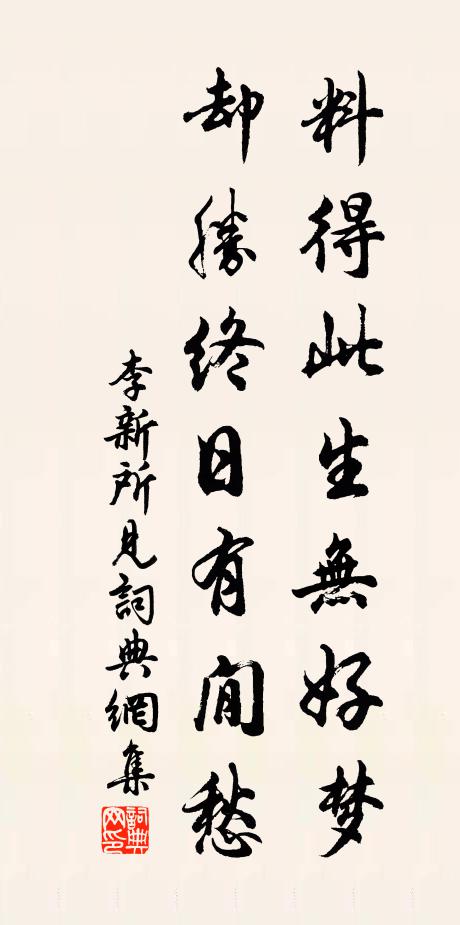 料得此生無好梦
却勝終日有閒愁
李新所見詞典網集
詞典網印